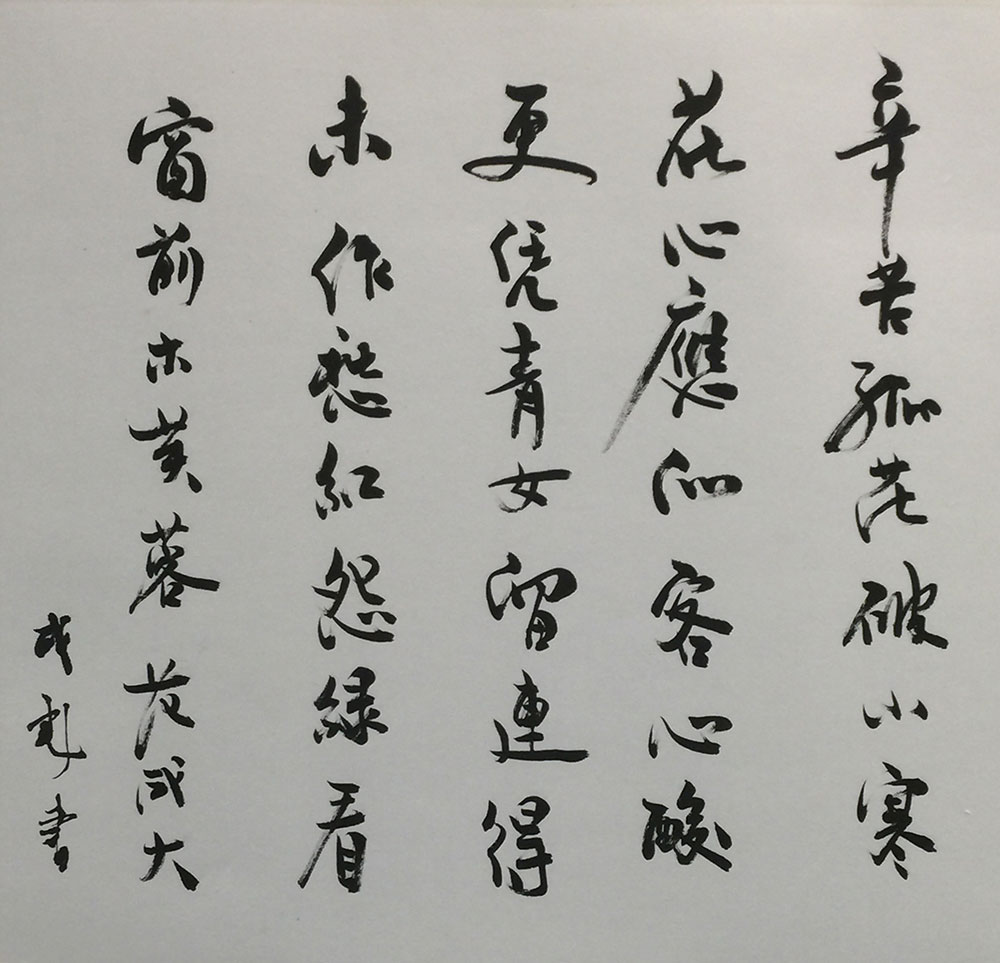 辛苦孤花破小寒
花心應似客心酸
更凭青女留連得
未作愁紅怨綠看
窗前木芙蓉 范成大
成彪書